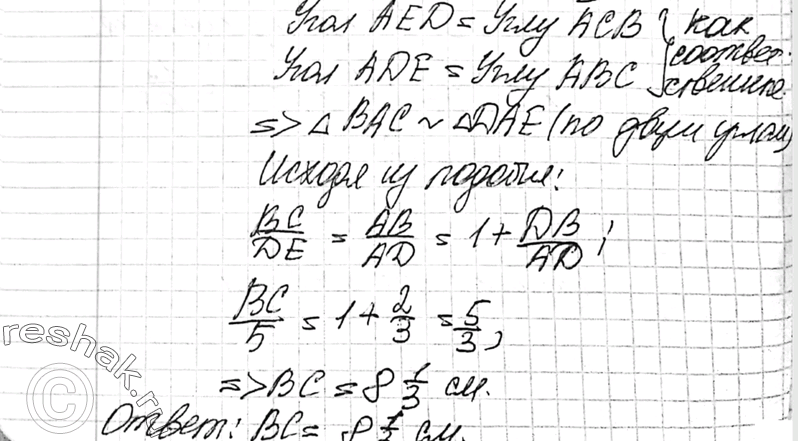 Угол AED = Углу ACB } как
Угол ADE = Углу ABC } соответственные.
=> △ BAC ~ △DAE (по двум углам)
Исходя из подобия:
BC/DE = AB/AD = 1 + DB/AD;
BC/5 = 1 + 2/3 = 5/3,
=> BC = 8 1/3 см.
Ответ: BC = 8 1/3 см.
reshak.ru
©